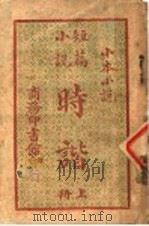 小本小說
短篇
小說
時諧
上冊
商務印書館